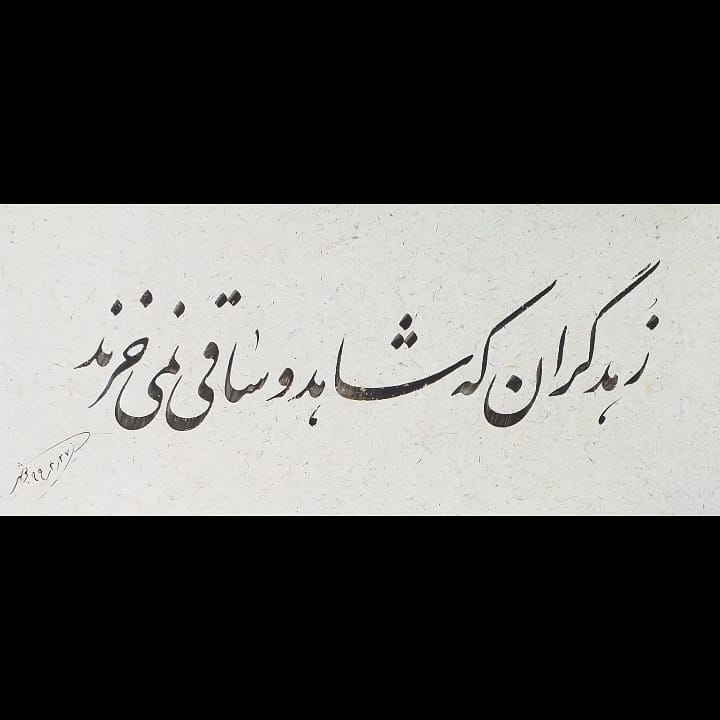 زهد گران که شاهد و ساقی نمی خرند